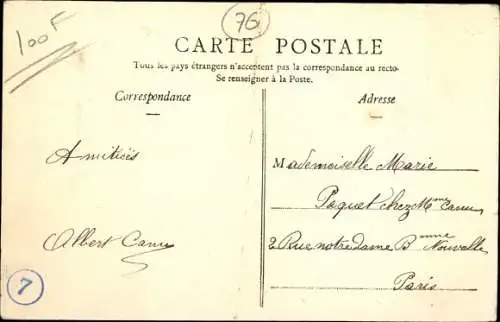 76
100F
CARTE POSTALE
Tous les pays étrangers n'acceptent pas la correspondance au recto-
Se renseigner à la Poste.
Correspondance
Adresse
Amitiés
Mademoiselle Marie
Paquet chez Mme Canu
Albert Canu
2 Rue notre Dame Bnne Nouvelle
Paris
7